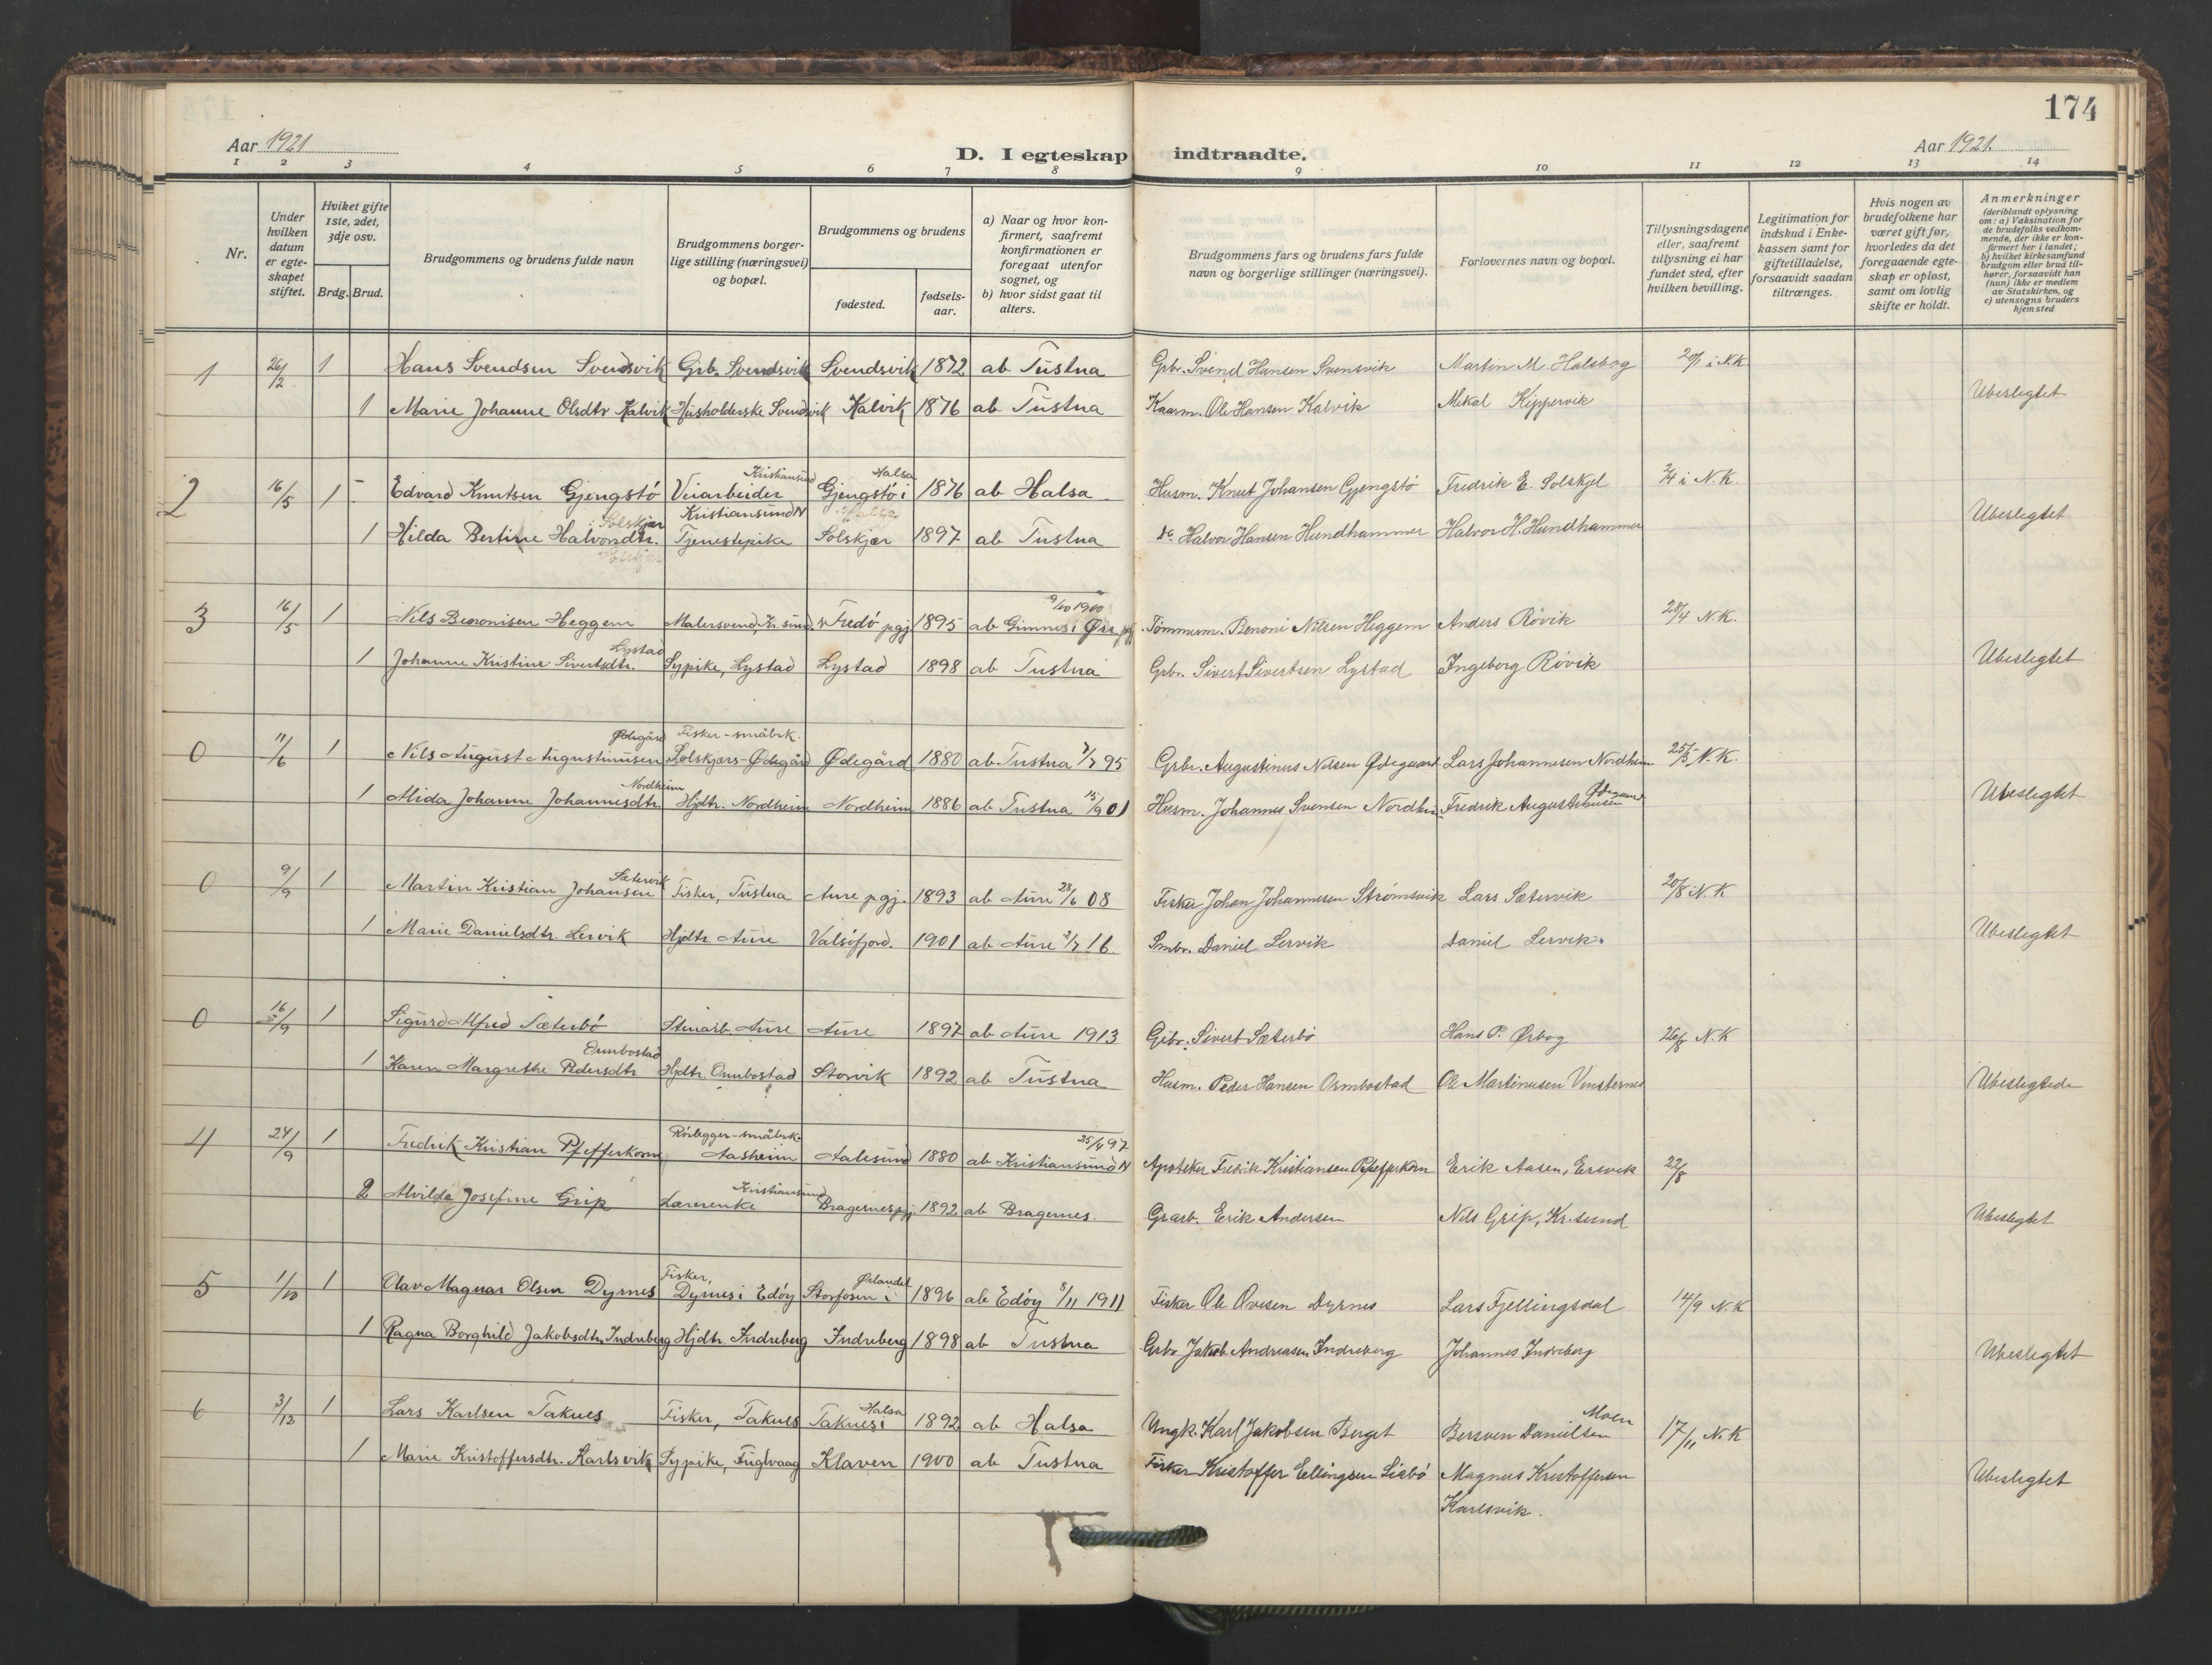 174
Aar 1921
D. I egteskap indtraadte.
Aar 1921.
1 2 3 4 5 6 7 8 9 10 11 12 13 14
Nr.
Under hvilken datum er egteskapet stiftet.
Hviket gifte 1ste, 2det, 3dje osv.
Brdg. Brud.
Brudgommens og brudens fulde navn
Brudgommens borgerlige stilling (næringsvei) og bopæl.
Brudgommens og brudens
fødested.
fødselsaar.
a) Naar og hvor konfirmert, saafremt konfirmationen er foregaat utenfor sognet, og
b) hvor sidst gaat til alters.
Brudgommens fars og brudens fars fulde navn og borgerlige stillinger (næringsvei).
Forlovernes navn og bopæl.
Tillysningsdagene eller, saafremt tillysning ei har fundet sted, efter hvilken bevilling.
Legitimation for indskud i Enkekassen samt for giftetilladelse, forsaavidt saadan tiltrænges.
Hvis nogen av brudefolkene har været gift før, hvorledes da det foregaaende egteskap er opløst, samt om lovlig skifte er holdt.
Anmerkninger
(deriblandt oplysning om: a) Vaksination for de brudefolks vedkommende, der ikke er konfirmert her i landet; b) hvilket kirkesamfund brudgom eller brud tilhører, forsaavidt han (hun) ikke er medlem av Statskirken, og c) utensogns bruders hjemsted
1 26/2 1 Hans Svendsen Svendsvik Grb. Svendsvik Svendsvik 1872 ab Tustna Grbr. Svend Hansen Svensvik Martin M. Halsbog 20/1 i N.K
1 Marie Johanne Olsdtr Kalvik Husholderske Svendsvik Kalvik 1876 ab Tustna Kaarm. Ole Hansen Kalvik Mekal Kippervik Ubeslegtet
2 16/5 1 Edvard Knutsen Gjengstö Veiarbeider Kristiansund Gjengstö i Halsa 1876 ab Halsa Husm. Knut Johansen Gjengstö Fredrik E. Solskjel 2/4 i N.K.
1 Hilda Bertine Halvorsdtr. Solskjær Kristiansund N Tjenestepike Solskjær 1897 ab Tustna do Halvor Hansen Hundhammer Halvor H. Hundhammer Ubeslegtet
3 16/5 1 Nils Benonisen Heggem Malersvend, Kr.sund. Fredö pgj 1895 ab Gimnes i Øre pgj 9/10 1910 Tömmerm. Benoni Nilsen Heggem Anders Rövik 28/4 N.K.
1 Johanne Kristine Sivertsdtr. Lystad Sypike, Lystad Lystad 1898 ab Tustna Grbr. Sivert Sivertsen Lystad Ingeborg Rövik Ubeslegtet
0 11/6 1 Nils August Augustinusen Ødegård Fisker-småbrk. Solskjærs-Ødegård Ødegård 1880 ab Tustna 7/7 95 Grbr. Augustinus Nilsen Ødegaard Lars Johannesen Nordheim 25/5 N.K.
1 Alida Johanne Johannesdtr. Nordheim Hjdtr. Nordheim Nordheim 1886 ab Tustna 15/9 01 Husm. Johannes Svensen Nordheim Fredrik Augustinusen Ødegaard Ubeslegtet
0 9/9 1 Martin Kristian Johansen Sætervik Fisker, Tustna Aure pgj. 1893 ab Aure 28/6 08 Fisker Johan Johannesen Strömsvik Lars Sætervik 20/8 i N.K
1 Marie Danielsdtr. Lervik Hjdtr. Aure Valsöfjord. 1901 ab Aure 2/7 16. Smbr. Daniel Lervik Daniel Lervik. Ubeslegtet
0 16/9 1 Sigurd Alfred Sæterbö Stenarb. Aure Aure 1897 ab Aure 1913 Grbr. Sivert Sæterbö Hans P. Ørbog 26/8 N.K
1 Karen Margrethe Pedersdtr Ormbostad Hjdtr. Ormbostad Storvik 1892 ab Tustna Husm. Peder Hansen Ormbostad Ole Martinusen Vinsternes Ubeslegtede
4 24/9 1 Fredrik Kristian Pfefferkorn Rörlegger-småbrk. Aasheim Aalesund 1880 ab Kristiansund N 25/4 97 Apoteker Fredrik Kristiansen Pfefferkorn Erik Aasen, Ersvik 22/8
2 Alvilde Josefine Grip Kristiansund Lærerenke Bragernes pgj. 1892 ab Bragernes. Grarb. Erik Andersen Nils Grip, Kr.sund Ubeslegtet
5 1/10 1 Olav Magnar Olsen Dyrnes Fisker, Dyrnes i Edöy Storfosen i Ørlandet 1896 ab Edöy 8/11 1911 Fisker Ole Ovesen Dyrnes Lars Fjellingsdal 14/9 N.K
1 Ragna Borghild Jakobsdtr. Indreberg Hjdtr. Indreberg Indreberg 1898 ab Tustna Grbr Jakob Andreasen Indreberg Johannes Indreberg Ubeslegtet
6 3/12 1 Lars Karlsen Taknes Fisker, Taknes Taknes i Halsa 1892 ab Halsa Ungk. Karl Jakobsen Berget Bersven Danielsen Moen 17/11 N.K
1 Marie Kristoffersdtr. Karlsvik Sypike, Fuglvaag Klaven 1900 ab Tustna Fisker Kristoffer Ellingsen Liabö Magnus Kristoffersen Ubeslegtet
Karlsvik.